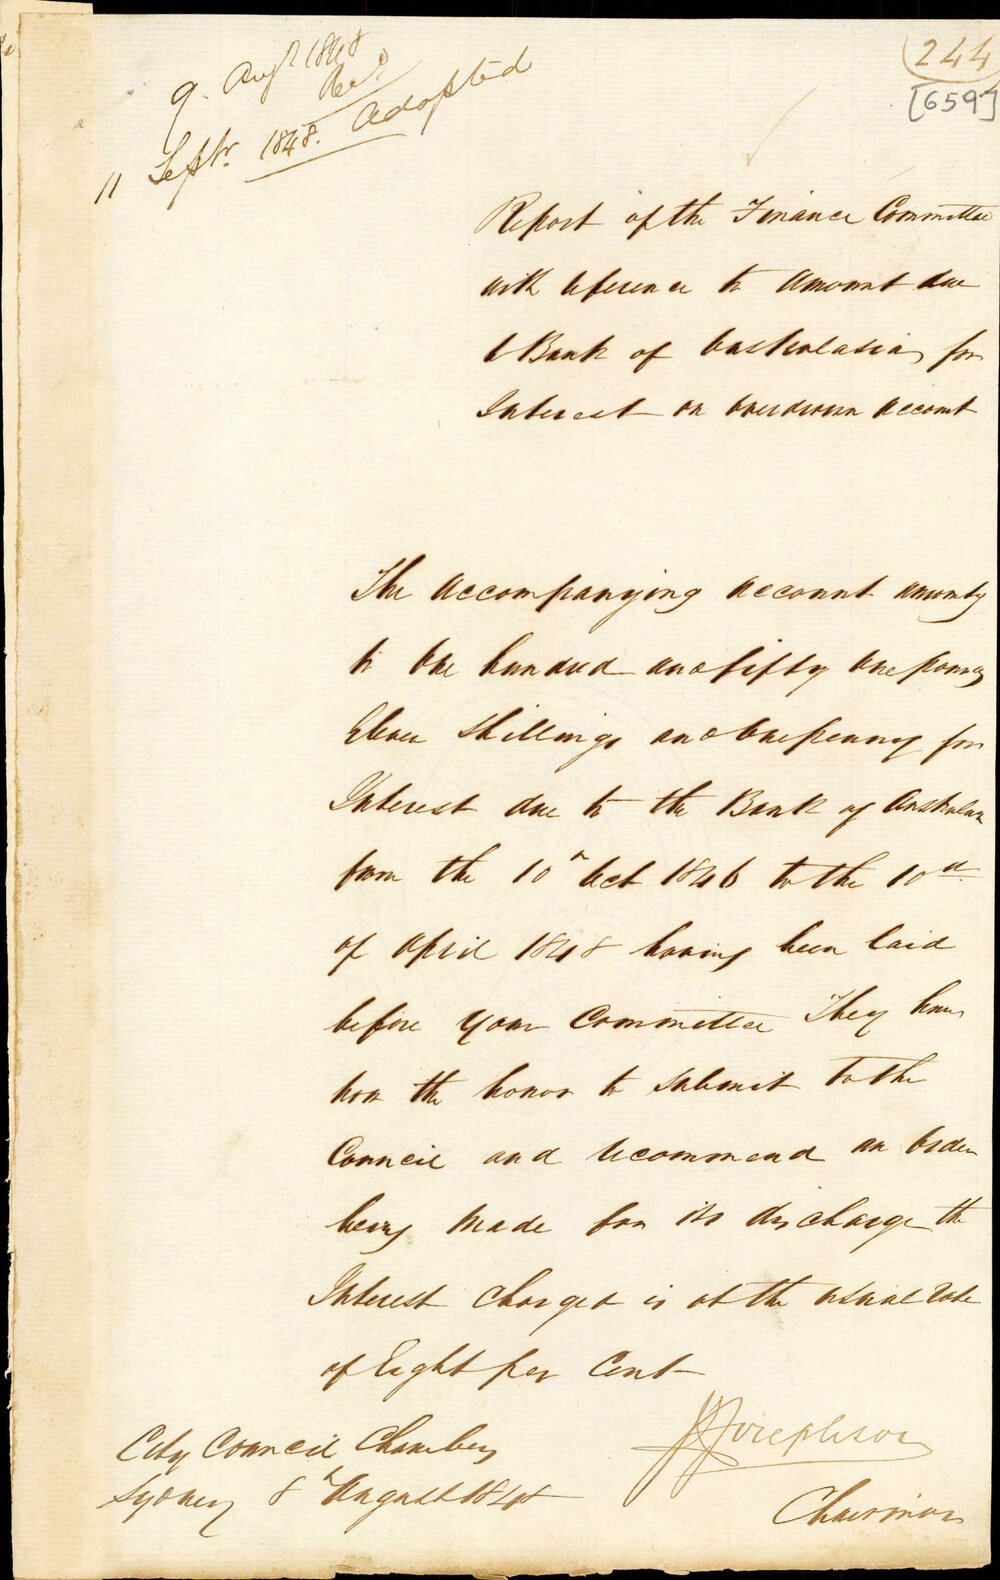 9. Augt. 1848
Recd.
11 Septr. 1848. Adopted
244
[659]
Report of the Finance Committee
with reference to amount due
to Bank of Australasia, for
Interest on overdrawn account
The accompanying account amountg
to one hundred and fifty one pounds
Eleven Shillings and one penny for
Interest due to the Bank of Australasia
from the 10th Oct 1846 to the 10th
of April 1848 having been laid
before your Committee They have
now the honor to submit to the
Council and recommend an order
being made for its discharge the
Interest charged is at the usual rate
of Eight per Cent
City Council Chambers
Sydney 8th August 1848
J Josephson
Chairman